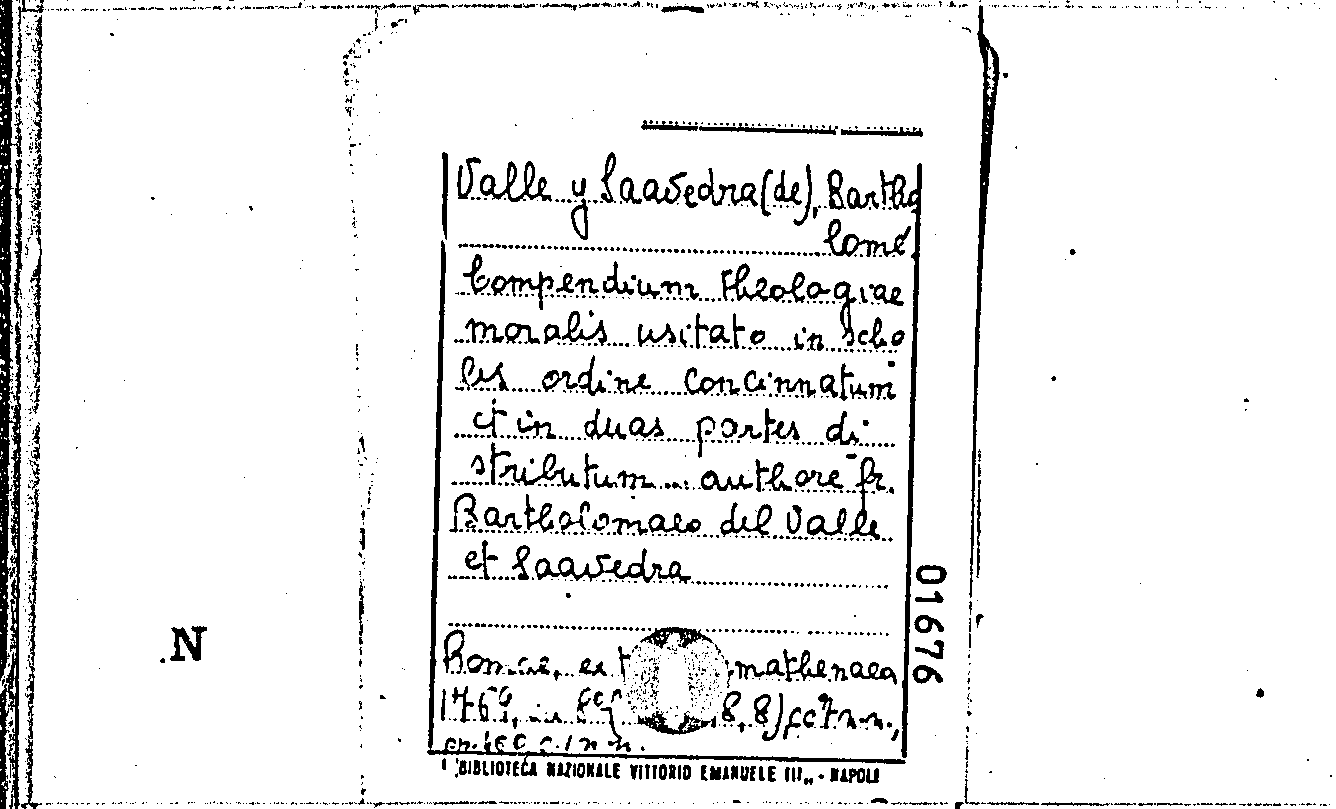 Valle y Saavedra (de), Bartho
lomé.
Compendium theologiae
moralis usitato in scho
lis ordine concinnatum
et in duas partes di-
stributum... authore fr.
Bartholomaeo del Valle
et Saavedra
Romae, ex mathenaea
1769, in 8, 8)
BIBLIOTECA NAZIONALE VITTORIO EMANUELE III„ - NAPOLI
01676
.N